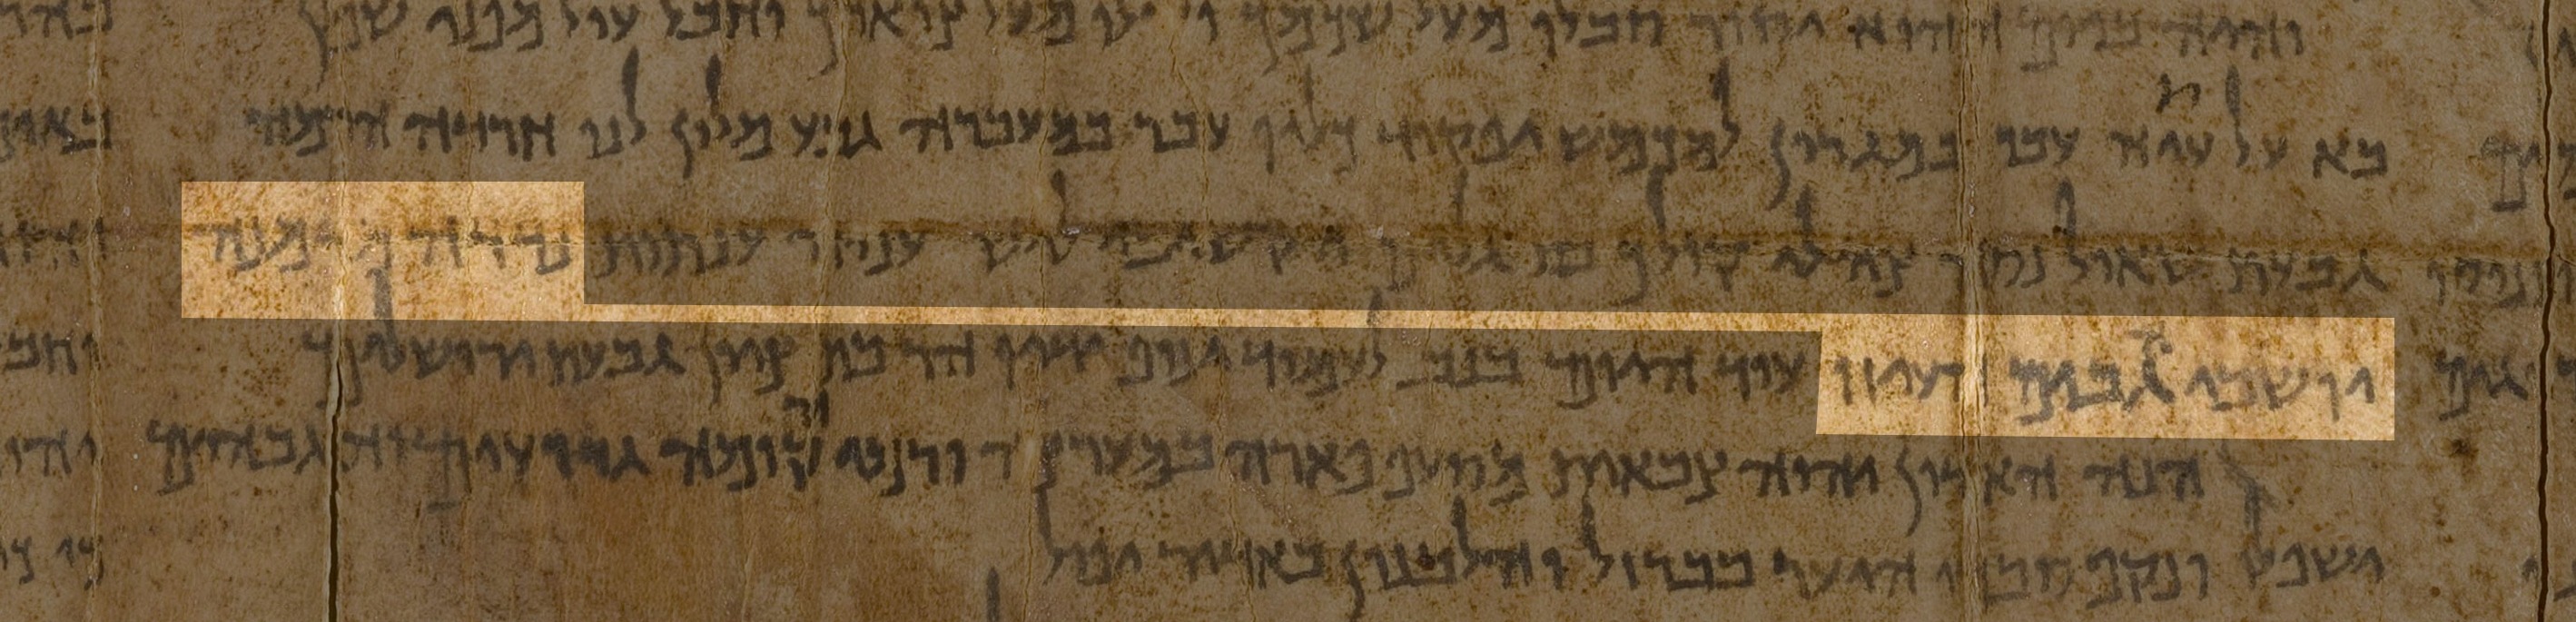 והיה ביום ההוא יסור סבלו מעל שכמך ועולו מעל צוארך וחבל עול מפני שמן
בא על עית עבר במגרון למכמש יפקוד כליו עבר במעברה גבע מלון לנו חרדה הרמה
גבעת שאול נסה צהלי קולך בת גלים הקשיבי לישה עניה ענתות נדדה מדמנה
יושבי הגבים העיזו עוד היום בנוב לעמוד יניף ידיו הר בת ציון גבעת ירושלים
הנה האדון יהוה צבאות מסעף פארה במערצה ורמי קומה גדועים והגבהים
ישפלו ונקף סבכי היער בברזל והלבנון באדיר יפול